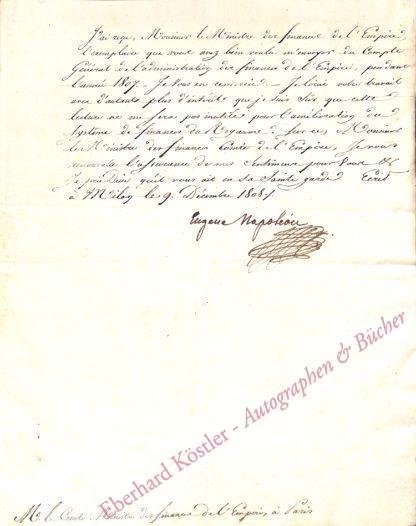 J'ai reçu, Monsieur le Ministre des finances de l'Empire,
l'exemplaire que vous avez bien voulu m'envoyer du Compte
Général de l'administration des finances de l'Empire, pendant
l'année 1807. Je vous en remercie. Je lirai votre travail
avec d'autant plus d'intérêt que je suis sûr que cette
lecture ne me sera pas inutile pour l'amélioration du
Système de finances du Royaume. Sur ce, Monsieur
le Ministre des finances Comte de l'Empire, je vous
renouvelle l'assurance de mes Sentimens pour vous &
Je prie Dieu qu'il vous ait en sa Sainte garde. Ecrit
à Milan le 9. Décembre 1808.
Eugène Napoléon
Eberhard Köstler - Autographen & Bücher
Mr. le Comte Ministre des finances de l'Empire, à Paris